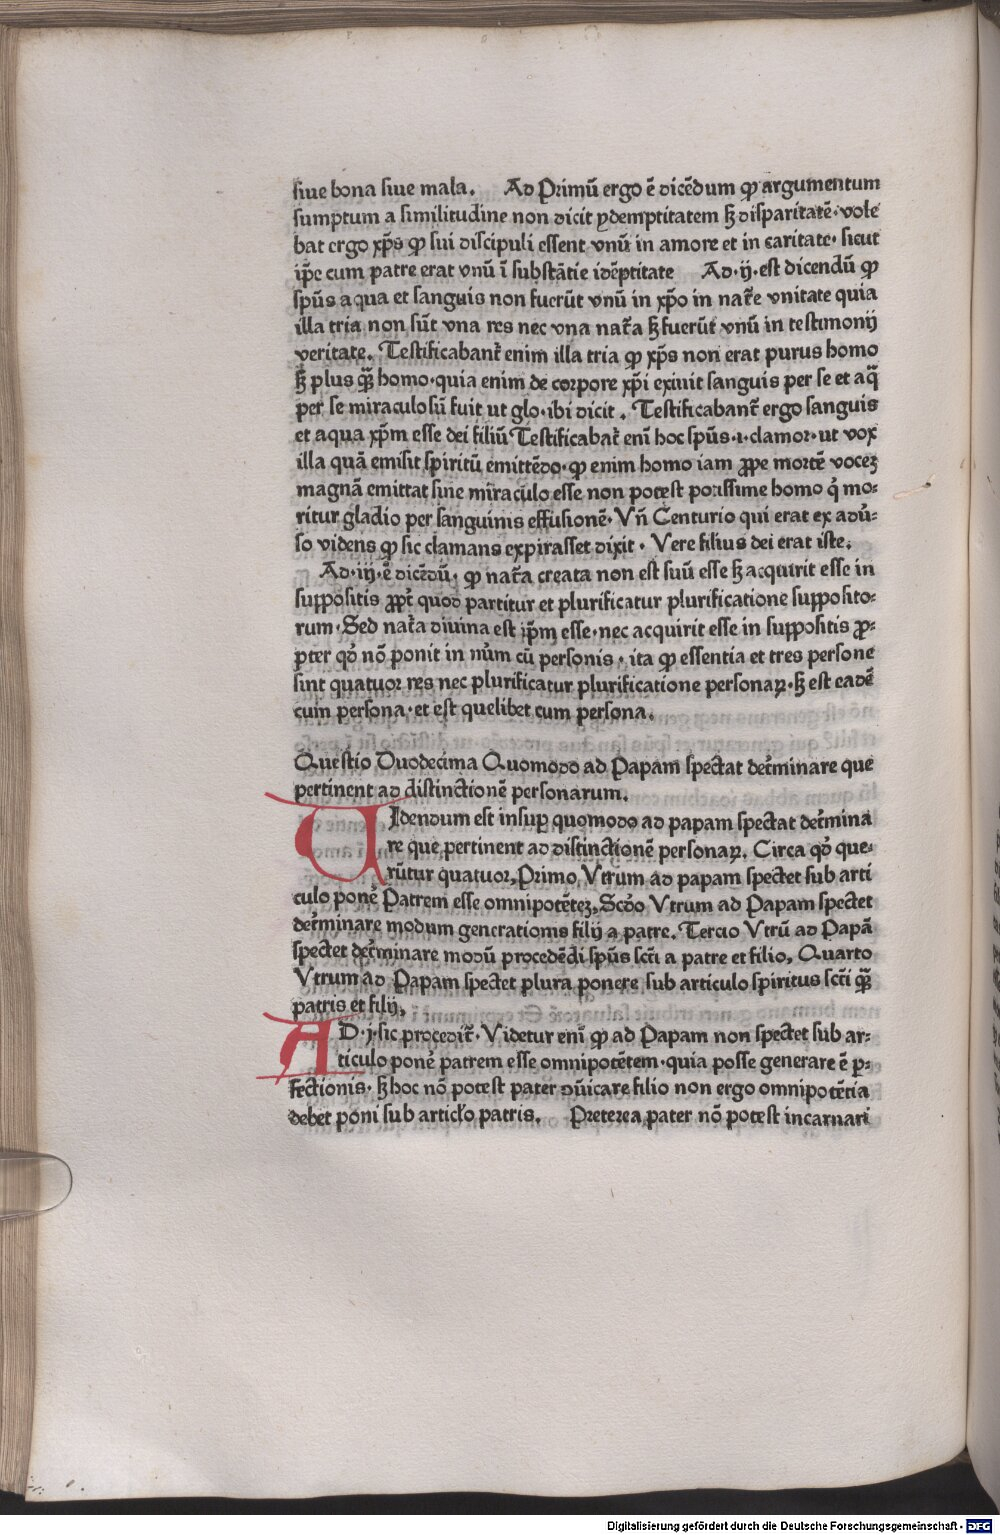 siue bona siue mala. Ad Primū ergo ē dicēdum ꝙ argumentum
sumptum a similitudine non dicit ydemptitatem ꝫ disparitatē· vole
bat ergo xp̄s ꝙ sui discipuli essent vnū in amore et in caritate· sicut
ip̄e cum patre erat vnū ī substātie idēptitate Ad·ij·est dicendū ꝙ
sp̄us aqua et sanguis non fuerūt vnū in xp̄o in nat̄e vnitate quia
illa tria non sūt vna res nec vna nat̄a ꝫ fuerūt vnū in testimonij
veritate. Testificabant̄ enim illa tria ꝙ xp̄s non erat purus homo
ꝫ plus qꝫ̄ homo·quia enim de corpore xp̄i exiuit sanguis per se et aq̄
per se miraculosū fuit ut glo·ibi dicit. Testificabant̄ ergo sanguis
et aqua xp̄m esse dei filiū Testificabat̄ enī hoc sp̄us·ı·clamor·ut vox
illa quā emisit spiritū emittēdo·ꝙ enim homo iam ꝓpe mortē voceꝫ
magnā emittat sine miraculo esse non potest potissime homo q̇ mo-
ritur gladio per sanguinis effusionē· Vn̄ Centurio qui erat ex adū-
so videns ꝙ sic clamans expirasset dixit· Vere filius dei erat iste.
Ad·iij·ē dicēdū· ꝙ nat̄a creata non est suū esse ꝫ acquirit esse in
suppositis ꝓpt̄ quod partitur et plurificatur plurificatione supposito-
rum· Sed nat̄a diuina est ip̄m esse·nec acquirit esse in suppositis ꝓ-
pter qđ nō ponit in nūm cū personis· ita ꝙ essentia et tres persone
sint quatuor res nec plurificatur plurificatione personaꝝ·ꝫ est eadē
cum persona·et est quelibet cum persona.
Questio Duodecima Quomodo ad Papam spectat det̄minare que
pertinent ad distinctionē personarum.
VIdendum est insuꝑ quomodo ad papam spectat det̄mina
re que pertinent ad distinctionē personaꝝ. Circa qđ que-
rūtur quatuor, Primo, Vtrum ad papam spectet sub arti
culo pone᷑ Patrem esse omnipotēteꝫ, Scđo Vtrum ad Papam spectet
det̄minare modum generationis filij a patre. Tercio Vtrū ad Papā
spectet det̄minare modū procedēdi sp̄us sct̄i a patre et filio, Quarto
Vtrum ad Papam spectet plura ponere sub articulo spiritus sct̄i qꝫ̄
patris et filij,
AD·j·sic procedit̄· Videtur enī ꝙ ad Papam non spectet sub ar-
ticulo pone᷑ patrem esse omnipotētem·quia posse generare ē ꝑ-
fectionis· ꝫ hoc nō potest pater ꝯm̄icare filio non ergo omnipotētia
debet poni sub articło patris. Preterea pater nō potest incarnari
Digitalisierung gefördert durch die Deutsche Forschungsgemeinschaft - DFG